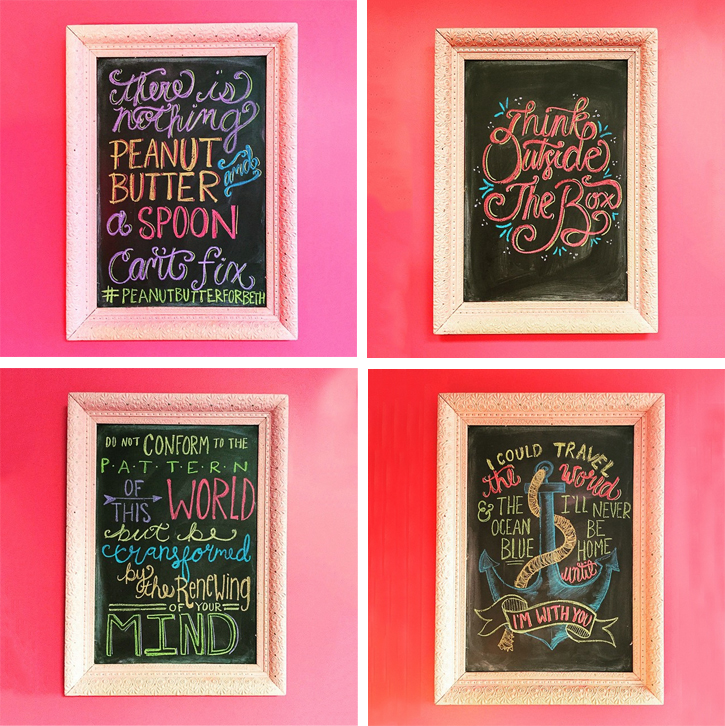 there is
nothing
PEANUT
BUTTER and
a SPOON
can't fix
#PEANUTBUTTERFORBETH
Think
Outside
The Box
DO NOT CONFORM TO THE
P·A·T·T·E·R·N
OF
THIS WORLD
but be
transformed
by the Renewing
OF YOUR
MIND
I COULD TRAVEL
the world
& THE
OCEAN
BLUE
I'LL NEVER
BE
HOME
until
I'M WITH YOU